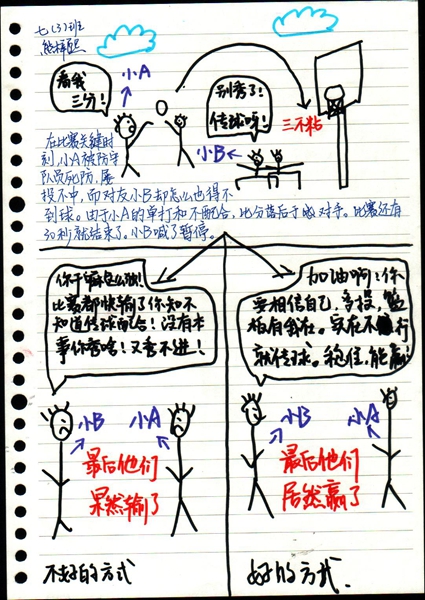 七(3)班
看我
三分!
小A
别秀了!
传球呀!
三不粘
小B
在比赛关键时
刻,小A被防守
队员死防,屡
投不中,而对友小B却怎么也得不
到球。由于小A的单打和不配合,比分落后于对手。比赛还有
30秒就结束了。小B喊了暂停。
你干嘛怎么独!
比赛都快输了你知不
知道传球配合!没有本
事你秀啥!又秀不进!
小B
小A
最后他们
果然输了
不好的方式
加油啊!你
要相信自己,音投,篮
柏自我在。实在不行
就传球。稳住,能赢!
小B
小A
最后他们
居然赢了
好的方式.